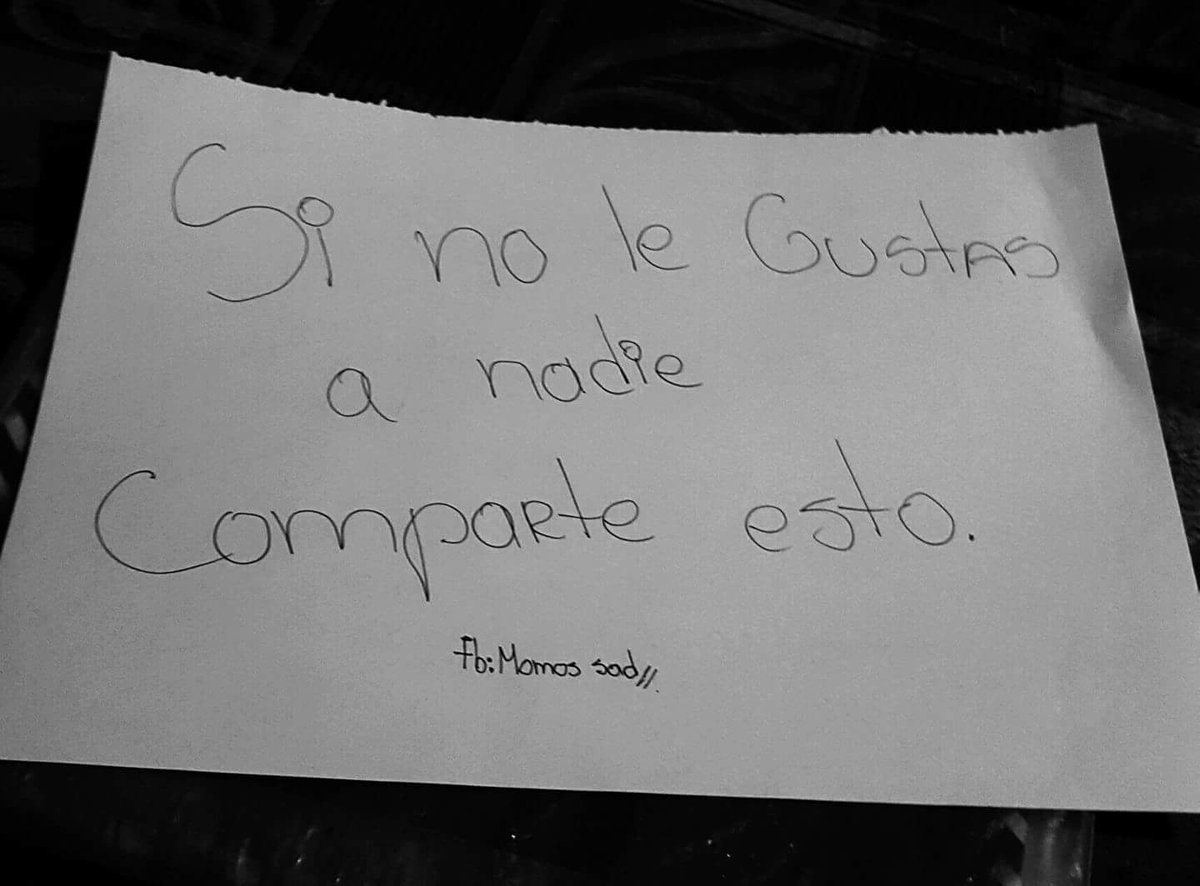 Si no le Gustas
a nadie
Comparte esto.
fb: Momos sad//.